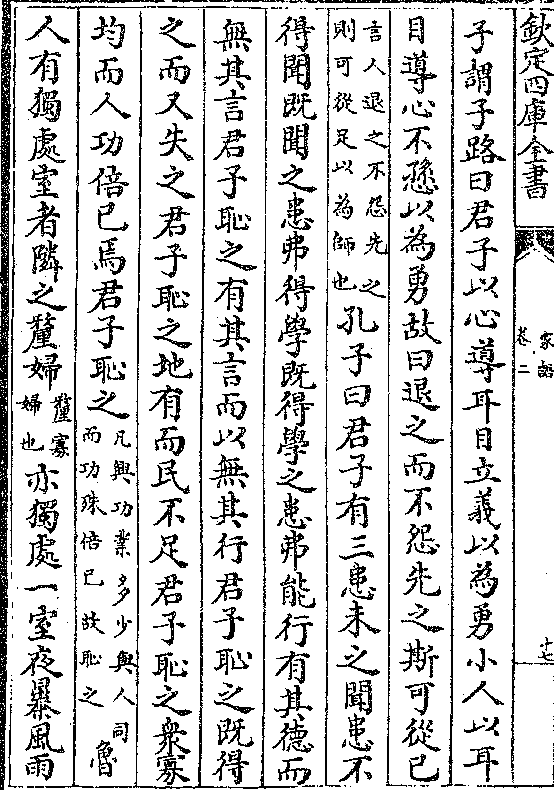 欽定四庫全書
家語
卷二
十七
子謂子路曰君子以心導耳目立義以為勇小人以耳
目導心不愻以為勇故曰退之而不怨先之斯可從已
言人退之不怨先之
則可從足以為師也
孔子曰君子有三患未之聞患不
得聞既聞之患弗得學既得學之患弗能行有其德而
無其言君子恥之有其言而以無其行君子恥之既得
之而又失之君子恥之地有而民不足君子恥之衆寡
均而人功倍已焉君子恥之
凡興功業多少與人司
而功殊倍已故恥之
魯
人有獨處室者隣之釐婦
釐寡
婦也
亦獨處一室夜暴風雨